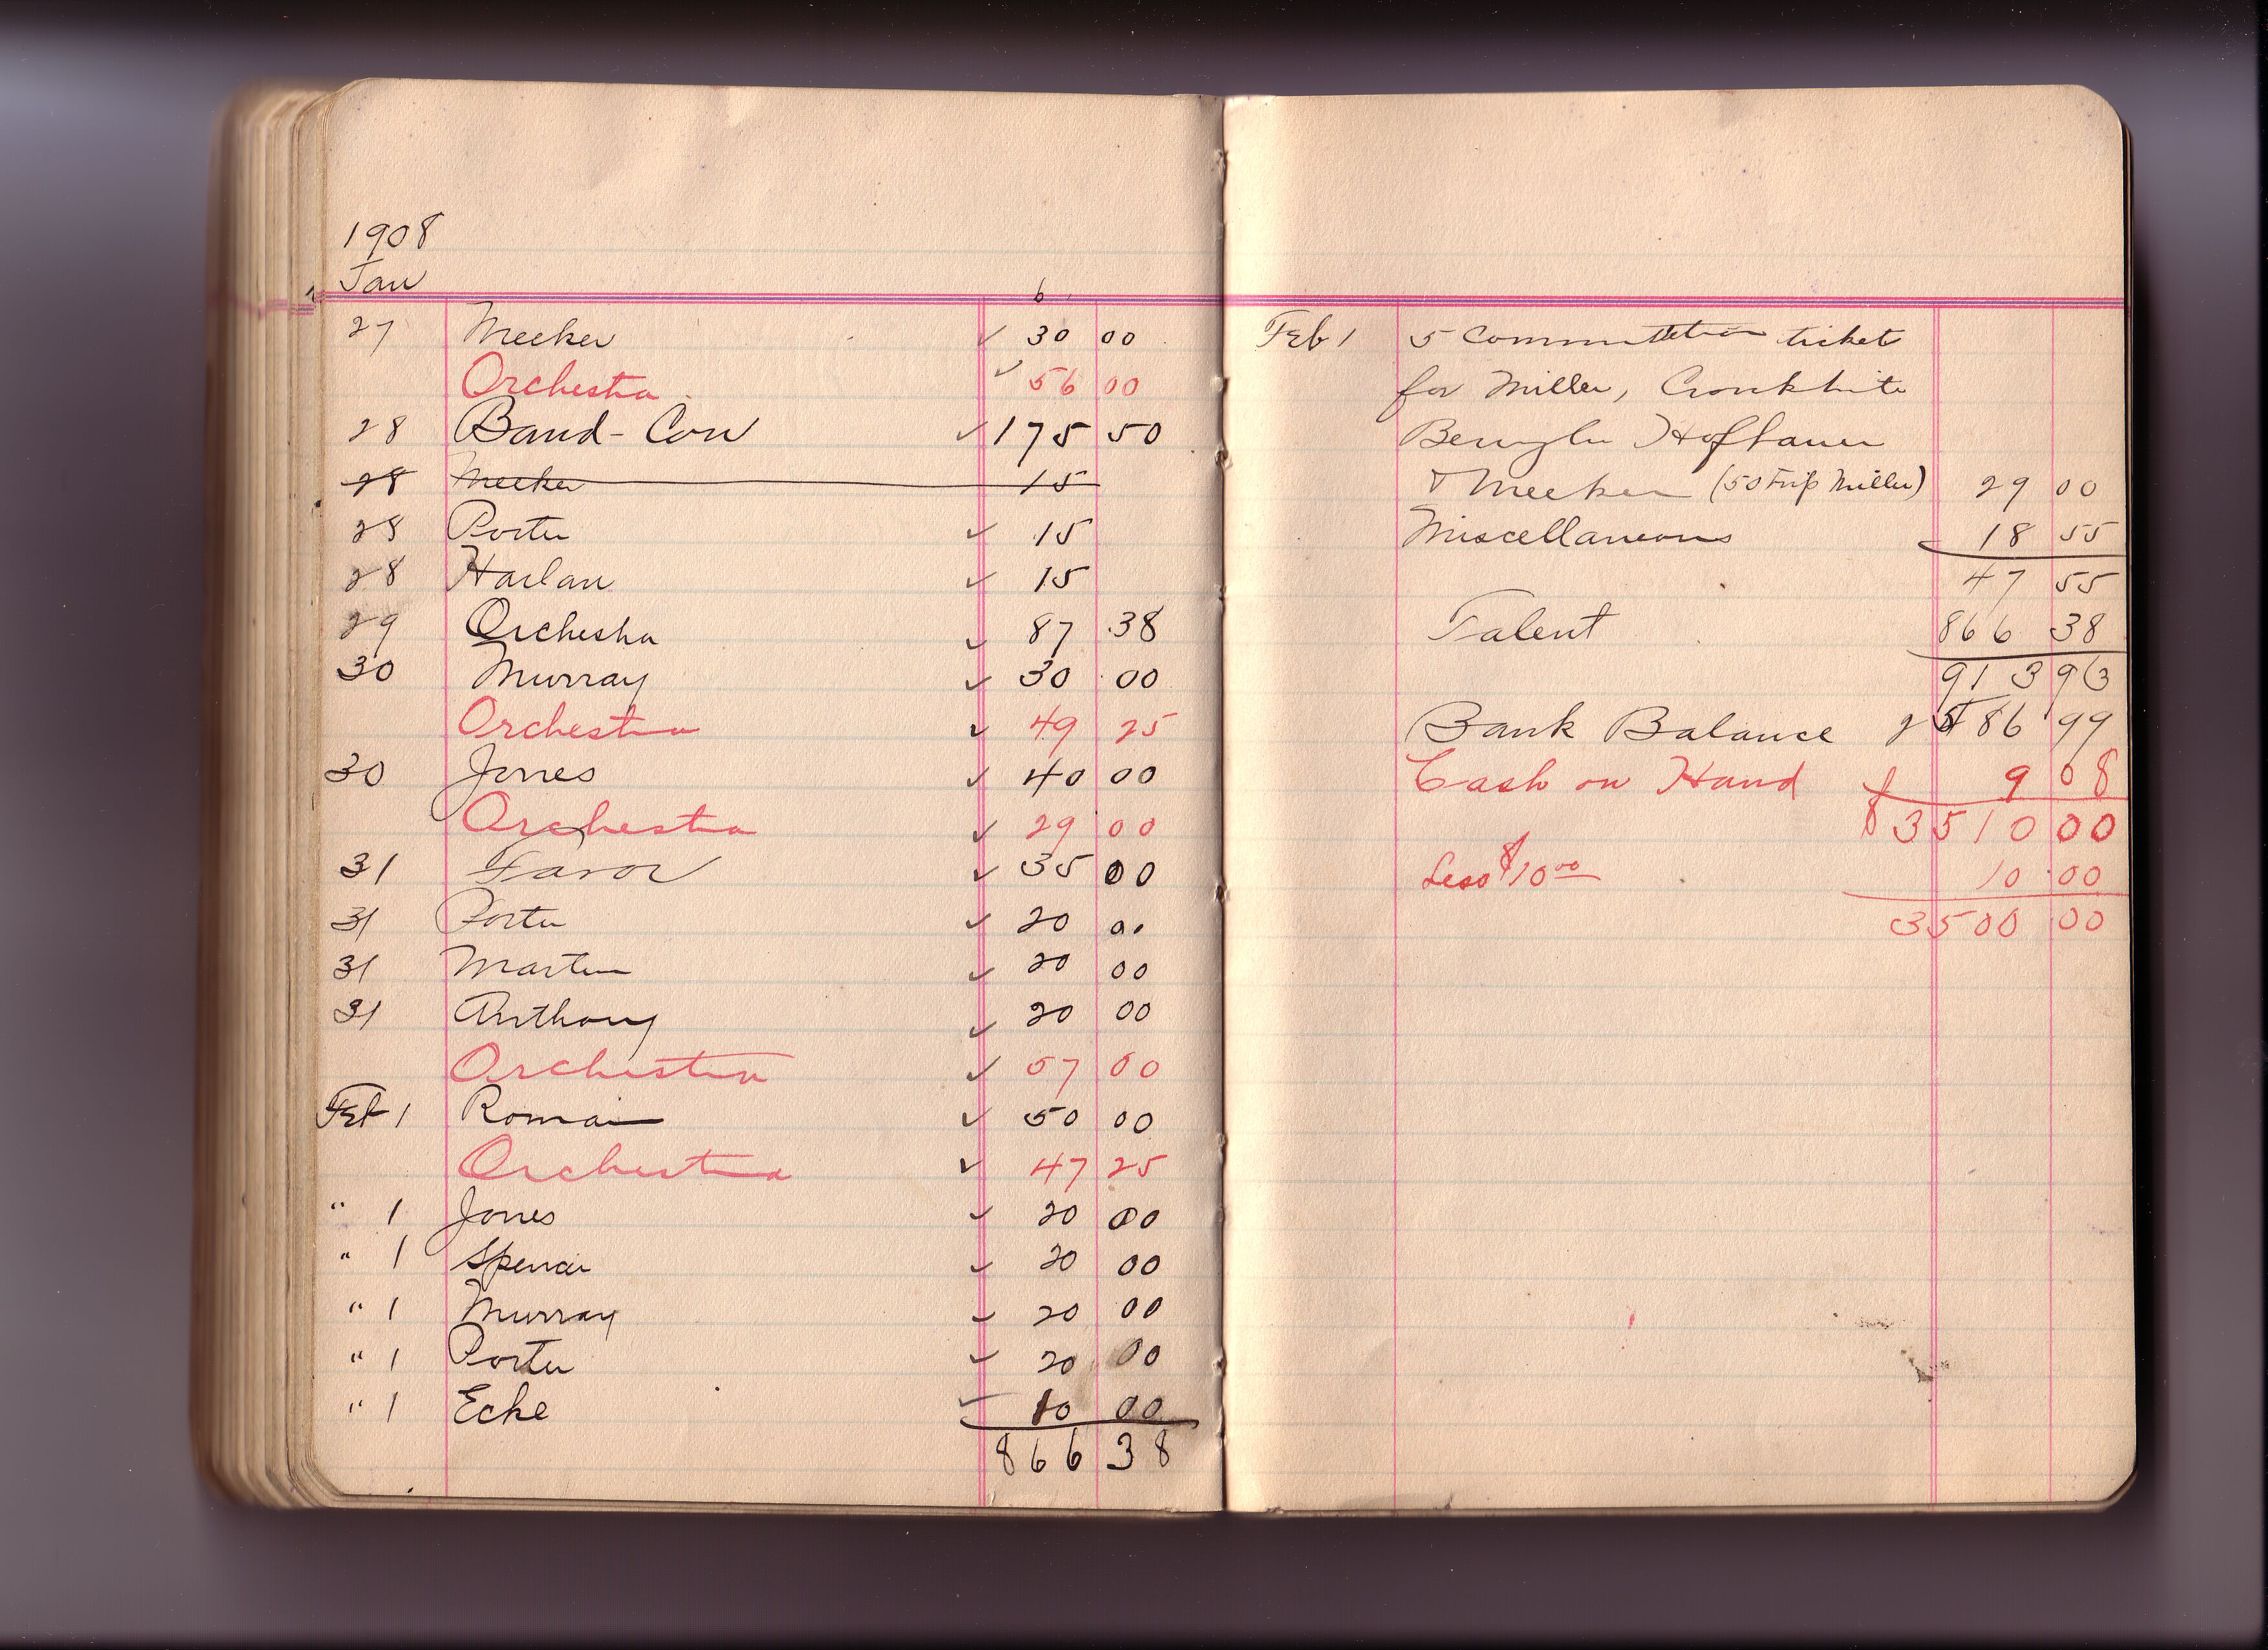 1908
Jan 6
27 Meeker ✓ 30 00
Orchestra ✓ 56 00
28 Band - Con ✓ 175 50
28 Meeker 15
28 Porter ✓ 15
28 Harlan ✓ 15
29 Orchestra ✓ 87 38
30 Murray ✓ 30 00
Orchestra ✓ 49 25
30 Jones ✓ 40 00
Orchestra ✓ 29 00
31 Favor ✓ 35 00
31 Porter ✓ 20 00
31 Martin ✓ 20 00
31 Anthony ✓ 20 00
Orchestra ✓ 57 00
Feb 1 Romain ✓ 50 00
Orchestra ✓ 47 25
" 1 Jones ✓ 20 00
" 1 Spencer ✓ 20 00
" 1 Murray ✓ 20 00
" 1 Porter ✓ 20 00
" 1 Ecke ✓ 10 00
866 38
Feb 1 5 Commutation ticket
for Miller, Cronkhite
Hofbauer
& Meeker (50 trip Miller) 29 00
Miscellaneous 18 55
47 55
Talent 866 38
913 93
Bank Balance 86 99
Cash on Hand 9 08
$3510 00
Less $10 00 10 00
3500 00